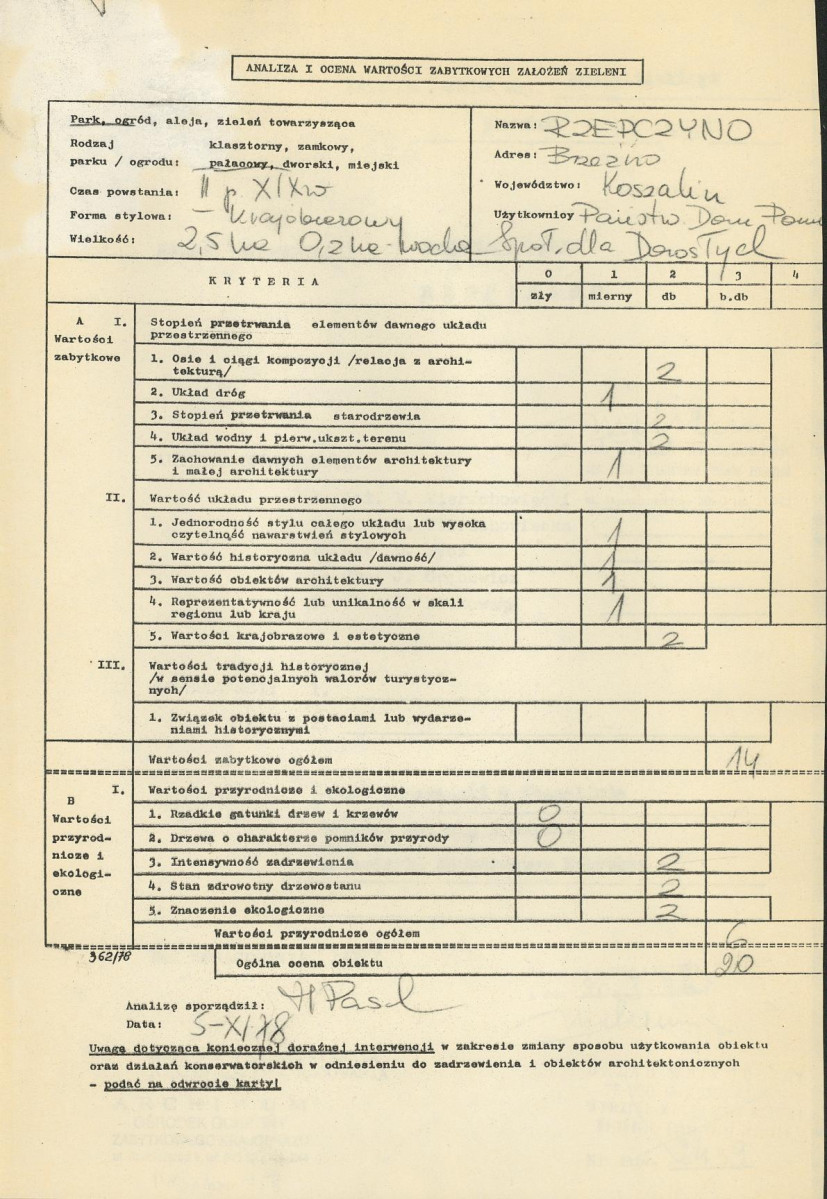 ANALIZA I OCENA WARTOŚCI ZABYTKOWYCH ZAŁOŻEŃ ZIELENI
Park, ogród, aleja, zieleń towarzysząca
Rodzaj klasztorny, zamkowy,
parku / ogrodu: pałacowy, dworski, miejski
Czas powstania: II p. XIXw
Forma stylowa: – Krajobrazowy
Wielkość: 2,5 ha 0,2 ha - woda
Nazwa: RZEPCZYNO
Adres: Brzeźno
Województwo: Koszalin
Użytkownicy Państw. Dom Pom
Społ. dla Dorosłych
KRYTERIA 0 1 2 3 4
zły mierny db b.db
A I. Stopień przetrwania elementów dawnego układu
Wartości przestrzennego
zabytkowe
1. Osie i ciągi kompozycji /relacja z archi-
tekturą/ 2
2. Układ dróg 1
3. Stopień przetrwania starodrzewia 2
4. Układ wodny i pierw.ukszt.terenu 2
5. Zachowanie dawnych elementów architektury
i małej architektury 1
II. Wartość układu przestrzennego
1. Jednorodność stylu całego układu lub wysoka
czytelność nawarstwień stylowych 1
2. Wartość historyczna układu /dawność/ 1
3. Wartość obiektów architektury 1
4. Reprezentatywność lub unikalność w skali
regionu lub kraju 1
5. Wartości krajobrazowe i estetyczne 2
III. Wartości tradycji historycznej
/w sensie potencjalnych walorów turystycz-
nych/
1. Związek obiektu z postaciami lub wydarze-
niami historycznymi
Wartości zabytkowe ogółem 14
I. Wartości przyrodnicze i ekologiczne
B
Wartości
przyrod-
nicze i
ekologi-
czne
1. Rzadkie gatunki drzew i krzewów 0
2. Drzewa o charakterze pomników przyrody 0
3. Intensywność zadrzewienia 2
4. Stan zdrowotny drzewostanu 2
5. Znaczenie ekologiczne 2
Wartości przyrodnicze ogółem 6
362/78
Ogólna ocena obiektu 20
Analizę sporządził:
Data: 5-XI/78
Uwagę dotycząca koniecznej doraźnej interwencji w zakresie zmiany sposobu użytkowania obiektu
oraz działań konserwatorskich w odniesieniu do zadrzewienia i obiektów architektonicznych
- podać na odwrocie karty!